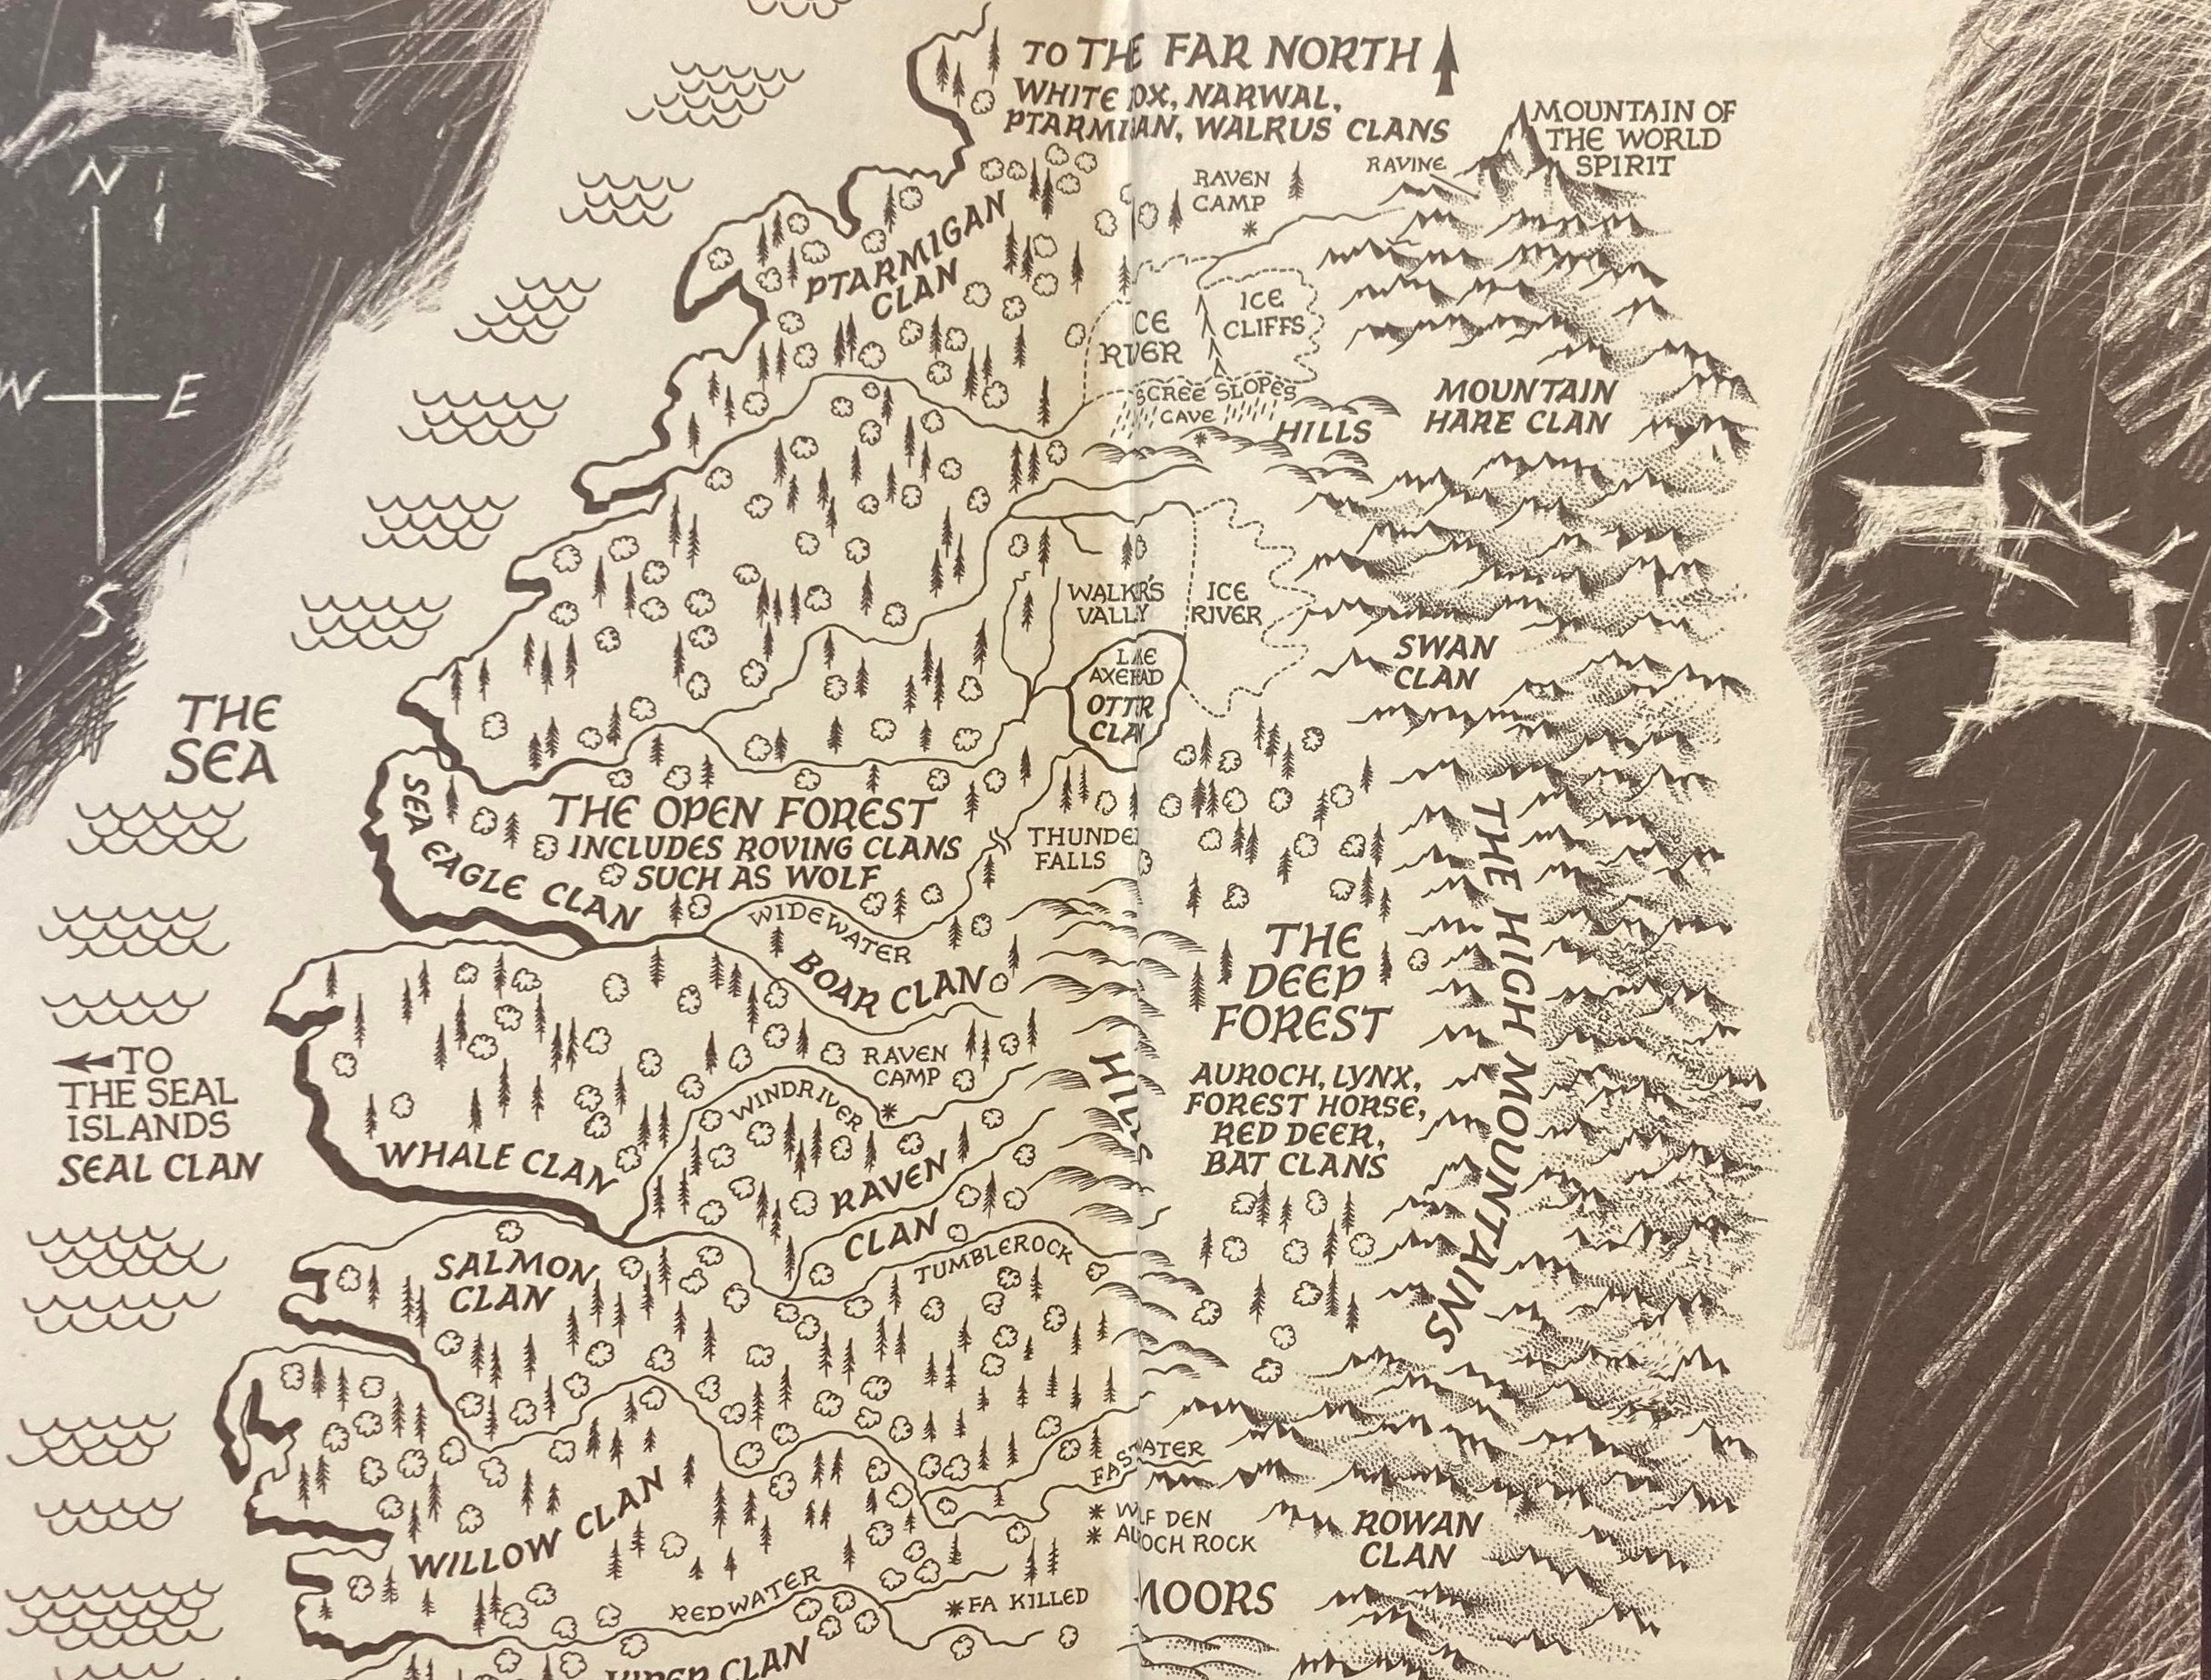 N
W
E
S
TO THE FAR NORTH
WHITE OX, NARWAL,
PTARMIGAN, WALRUS CLANS
MOUNTAIN OF
THE WORLD
SPIRIT
RAVINE
RAVEN
CAMP
PTARMIGAN
CLAN
ICE
CLIFFS
ICE
RIVER
SCREE SLOPES
CAVE
HILLS
MOUNTAIN
HARE CLAN
WALKR'S
VALLY
ICE
RIVER
SWAN
CLAN
AXEHAD
OTTR
CLA
THE
SEA
SEA EAGLE CLAN
THE OPEN FOREST
INCLUDES ROVING CLANS
SUCH AS WOLF
THUNDE
FALLS
WIDEWATER
BOAR CLAN
THE
DEEP
FOREST
AUROCH, LYNX,
FOREST HORSE,
RED DEER,
BAT CLANS
THE HIGH MOUNTAINS
HILLS
TO
THE SEAL
ISLANDS
SEAL CLAN
RAVEN
CAMP
WINDRIVER
WHALE CLAN
RAVEN
CLAN
TUMBLEROCK
SALMON
CLAN
WILLOW CLAN
FASTWATER
W LF DEN
AU OCH ROCK
ROWAN
CLAN
REDWATER
FA KILLED
MOORS
VIPER CLAN